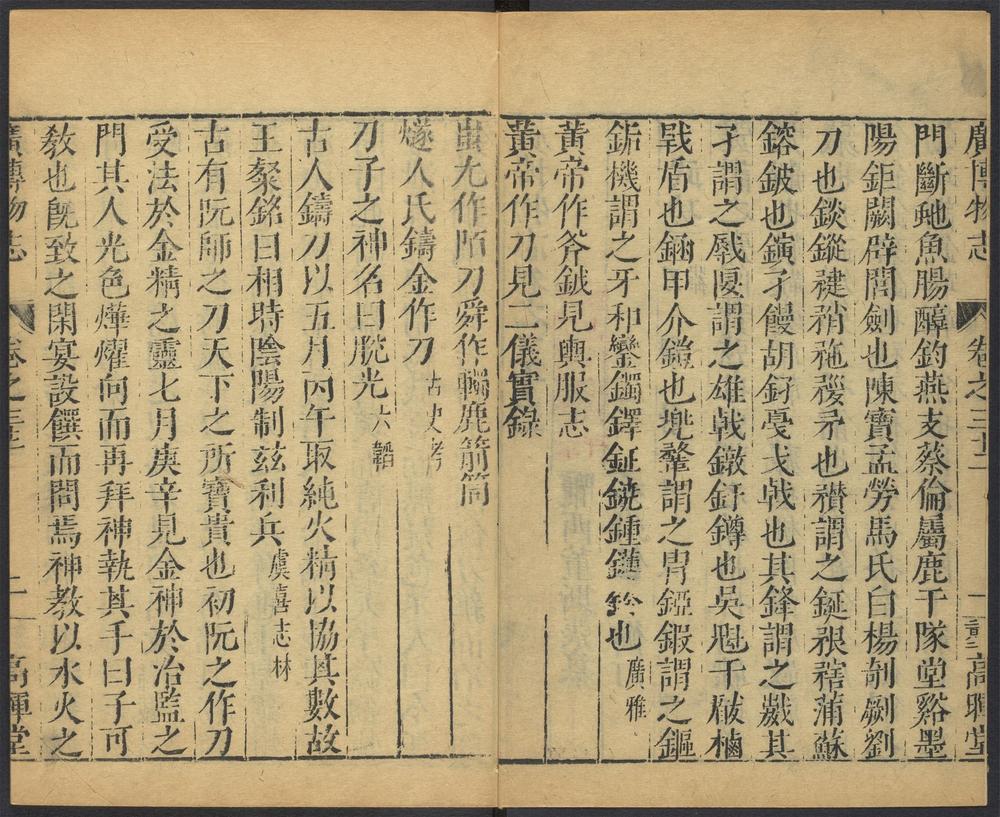 廣博物志 卷之三十二 一 高暉堂
門斷虵魚腸醇鈞燕支蔡倫屬鹿干隊堂谿墨
陽鉅闕辟閭劍也陳寶孟勞馬氏白楊剞劂劉
刀也錟鏦䂎矟𥍸䅹矛也䂎謂之鋋䂎𥎆蒲蘇
鎔鈹也鏔孑鏝胡釨戛戈戟也其鋒謂之䤋其
孑謂之戲㢮謂之雄戟鐓釪鐏也吳魁干瞂樐
戰盾也錏甲介鎧也兠鍪謂之冑錏鍜謂之鏂
銗機謂之牙和鑾鐲鐸鉦鐃鍾鏈鈴也 廣雅
黃帝作斧鉞見輿服志
黃帝作刀見二儀實錄
蚩尤作陌刀舜作䡾鹿箭筒
燧人氏鑄金作刀 古史考
刀子之神名曰脫光 六韜
古人鑄刀以五月丙午取純火精以協其數故
王粲銘曰相時陰陽制玆利兵 虞喜志林
古有阮師之刀天下之所寶貴也初阮之作刀
受法於金精之靈七月庚辛見金神於冶監之
門其人光色煒燿向而再拜神執其手曰子可
敎也旣致之閑宴設饌而問焉神敎以水火之
廣博物志 卷之三十二 二 高暉堂